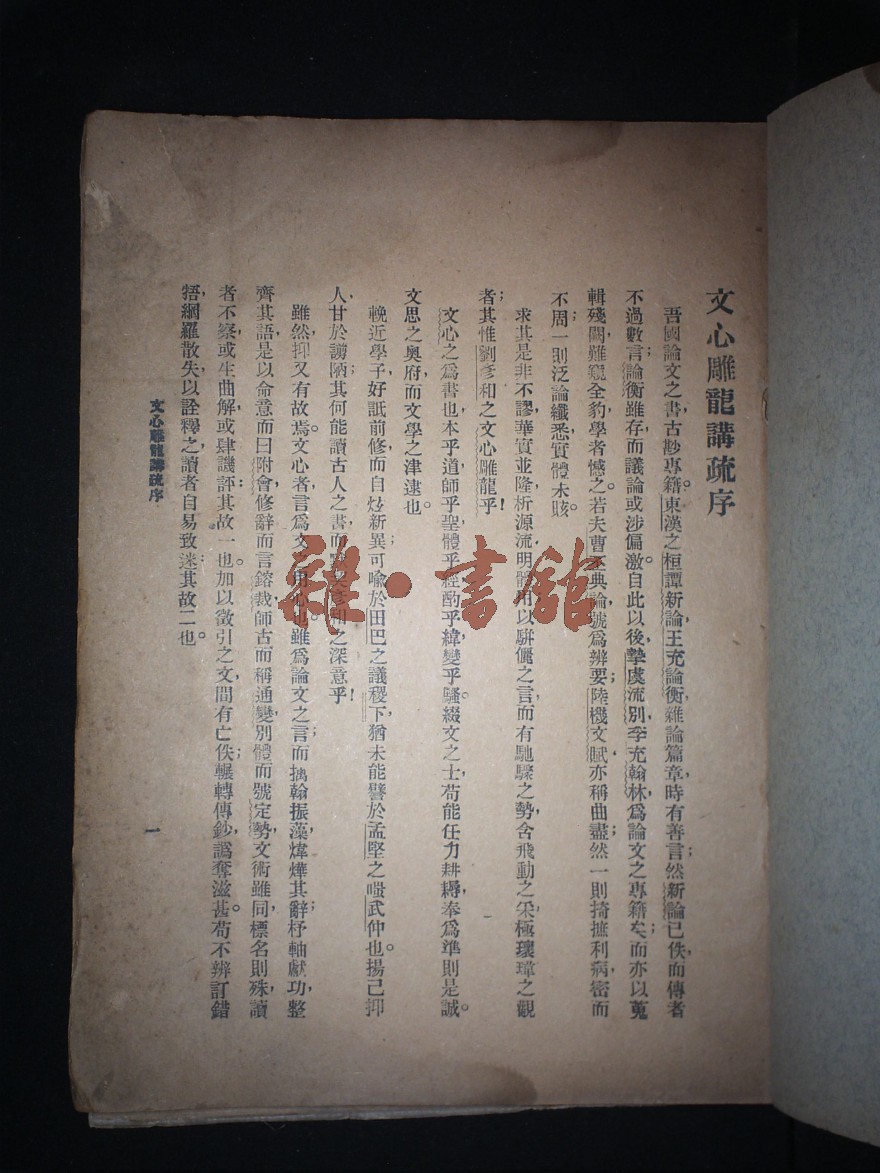 文心雕龍講疏序
吾國論文之書，古尠專籍。東漢之桓譚新論，王充論衡，雜論篇章，時有善言；然新論已佚，而傳者
不過數言；論衡雖存，而議論或涉偏激。自此以後，摯虞流別，李充翰林，為論文之專籍矣；而亦以蒐
輯殘闕，難窺全豹，學者憾之。若夫曹丕典論，號為辨要；陸機文賦，亦稱曲盡；然一則掎摭利病，密而
不周；一則泛論纖悉，實體未賅。
求其是非不謬，華實並隆，析源流，明體用，以駢儷之言，而有馳驟之勢，含飛動之采，極瓌瑋之觀
者，其惟劉彥和之文心雕龍乎！
文心之為書也，本乎道，師乎聖，體乎經，酌乎緯，變乎騷。綴文之士，苟能任力耕耨，奉為準則，是誠
文思之奧府，而文學之津逮也。
輓近學子，好詆前修，而自炫新異；可喻於田巴之議稷下，猶未能譬於孟堅之嗤武仲也。揚己抑
人，甘於謭陋，其何能讀古人之書，而彥和之深意乎！
雖然，抑又有故焉。文心者，言為文之用心也。雖為論文之言，而摛翰振藻，煒燁其辭；杼軸獻功，整
齊其語；是以命意而曰附會，修辭而言鎔裁，師古而稱通變，別體而號定勢，文術雖同，標名則殊，讀
者不察，或生曲解，或肆譏評：其故一也。加以徵引之文，間有亡佚，輾轉傳鈔，譌奪滋甚。苟不辨訂錯
牾，網羅散失，以詮釋之，讀者自易致迷；其故二也。
文心雕龍講疏序
一
雜·書舘